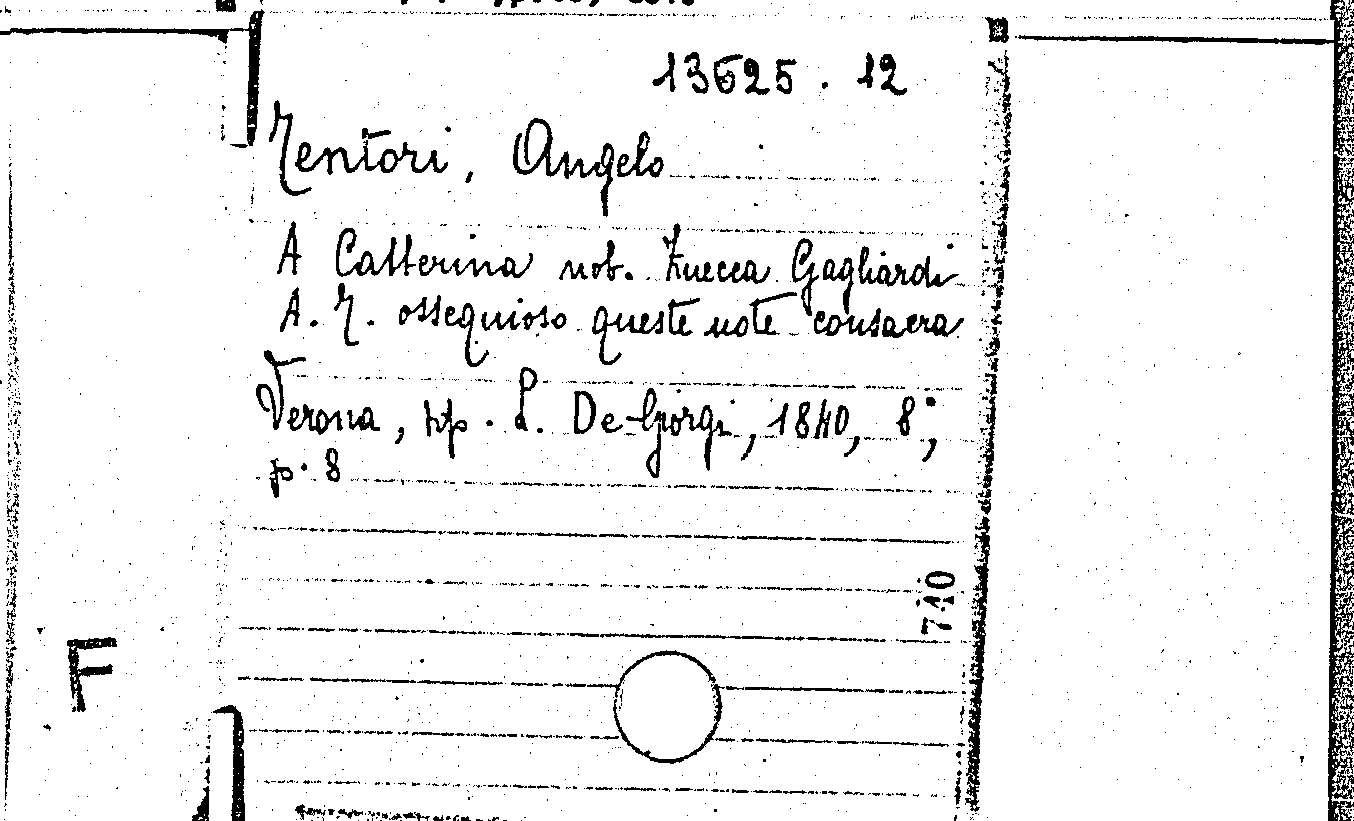 13625 . 12
Tentori, Angelo
A Catterina nob. Zuecca Gagliardi
A. T. ossequioso queste note consacra
Verona, tip. P. De-Giorgi, 1840, 8°,
p. 8
740
F